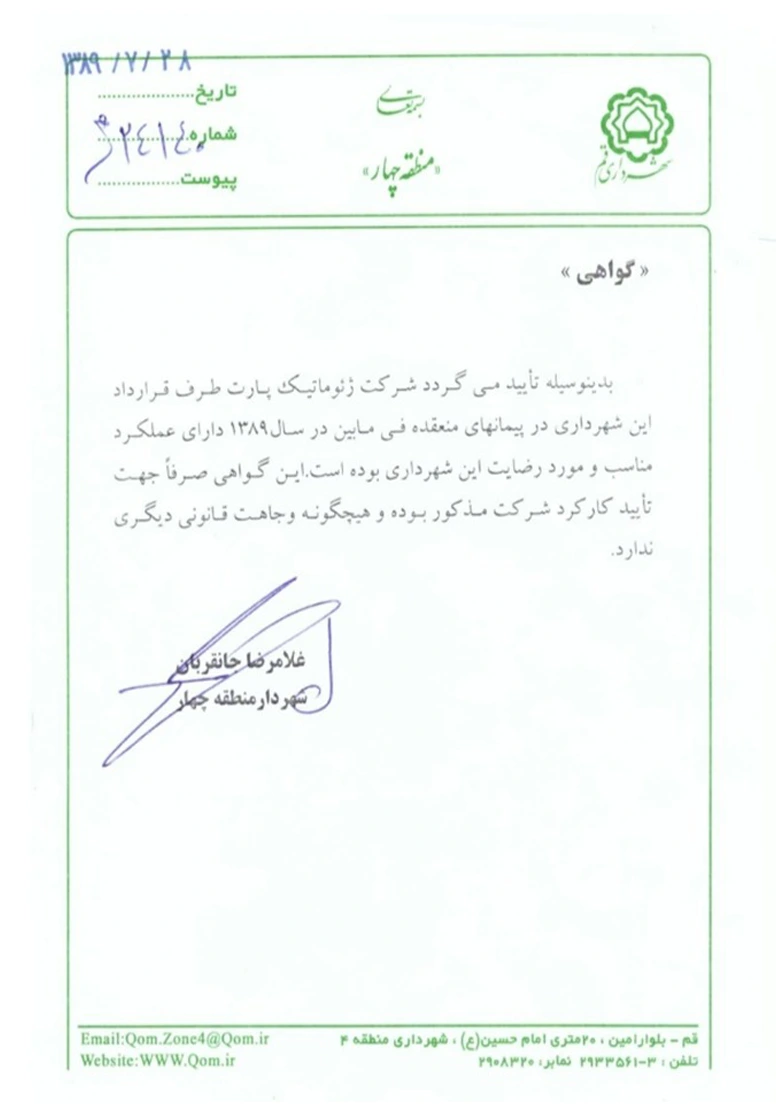 ۱۳۸۹/۷/۲۸
تاریخ....................
شماره....................
پیوست....................
بسمه تعالی
«منطقه چهار»
شهرداری قم
« گواهی »
بدینوسیله تأیید می گردد شرکت ژئوماتیک پارت طرف قرارداد
این شهرداری در پیمانهای منعقده فی مابین در سال۱۳۸۹ دارای عملکرد
مناسب و مورد رضایت این شهرداری بوده است.این گواهی صرفاً جهت
تأیید کارکرد شرکت مذکور بوده و هیچگونه وجاهت قانونی دیگری
ندارد.
غلامرضا جانقربان
شهردار منطقه چهار
قم – بلوارامین ، ۲۰متری امام حسین(ع) ، شهرداری منطقه ۴
تلفن : ۳-۲۹۳۳۵۶۱ نمابر: ۲۹۰۸۳۲۰
Email:Qom.Zone4@Qom.ir
Website:WWW.Qom.ir